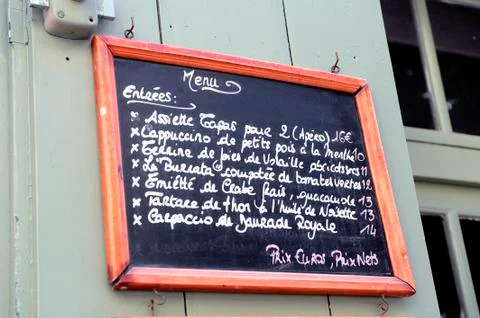 Menu
Entrées:
x Assiette Tapas pour 2 (Apéro) 16€
x Cappuccino de petits pois à la menthe 10
x Terrine de foies de Volaille abricots secs 11
x La "Burrata" compotée de tomates vertes 12
x Emietté de Crabe frais, guacamole 13
x Tartare de thon à l'huile de Noisette 13
x Carpaccio de Daurade Royale 14
Prix Euros, Prix Nets